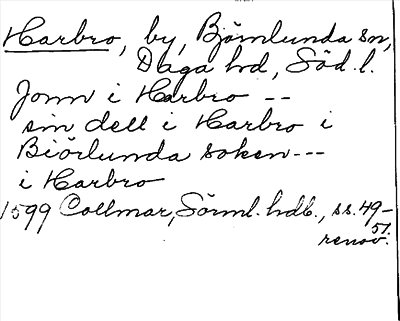 Harbro, by, Björnlunda sn,
Daga hd, Söd. l.
Jonn i Harbro --
sin dell i Harbro i
Biörlunda soken ---
i Harbro
1599 Collmar, Sörml. hdb., ss. 49-
51.
renov.